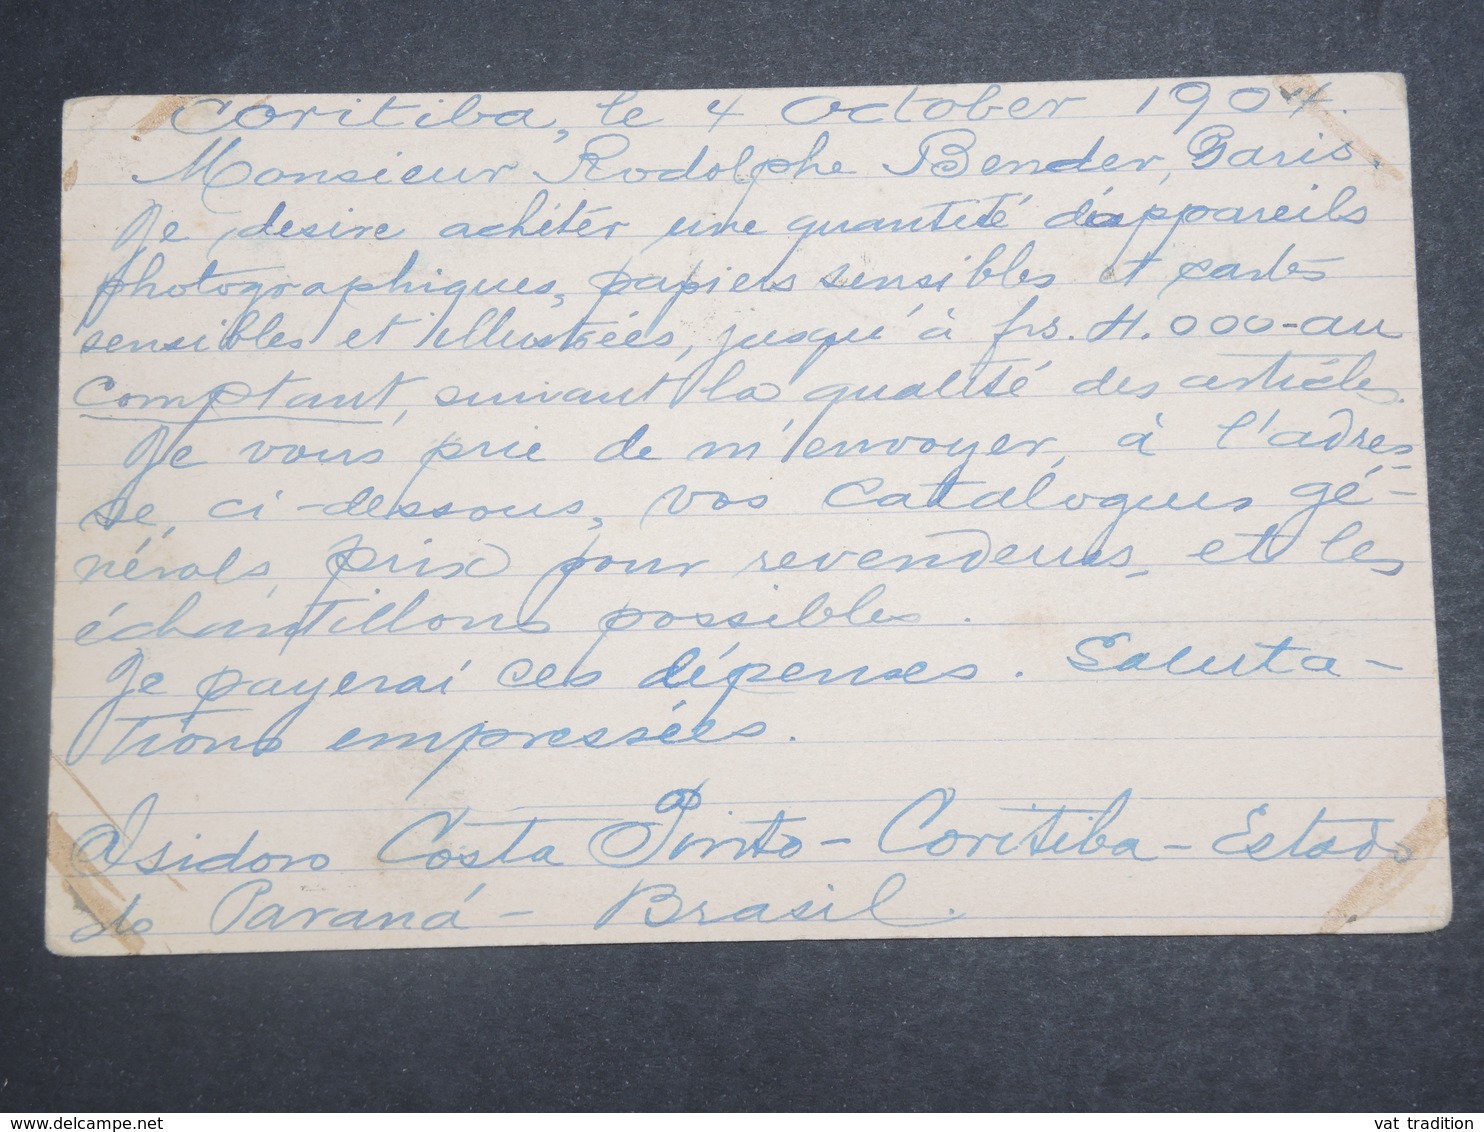 Coritiba, le 4 October 1904.
Monsieur Rodolphe Bender, Paris.
Je desire achétér une quantité d'appareils
photographiques, papiers sensibles et cartes
sensibles et illustrées, jusqu'à frs. 4.000-au
comptant, suivant la qualité des articles.
Je vous prie de m'envoyer, à l'adres-
se, ci-dessous, vos catalogues gé-
nérals, prix pour revendeurs, et les
échantillons possibles.
Je payerai ces dépenses. Saluta-
tions empressées.
Isidoro Costa Pinto - Coritiba - Estado
do Paraná - Brasil.
www.delcampe.net
vat tradition